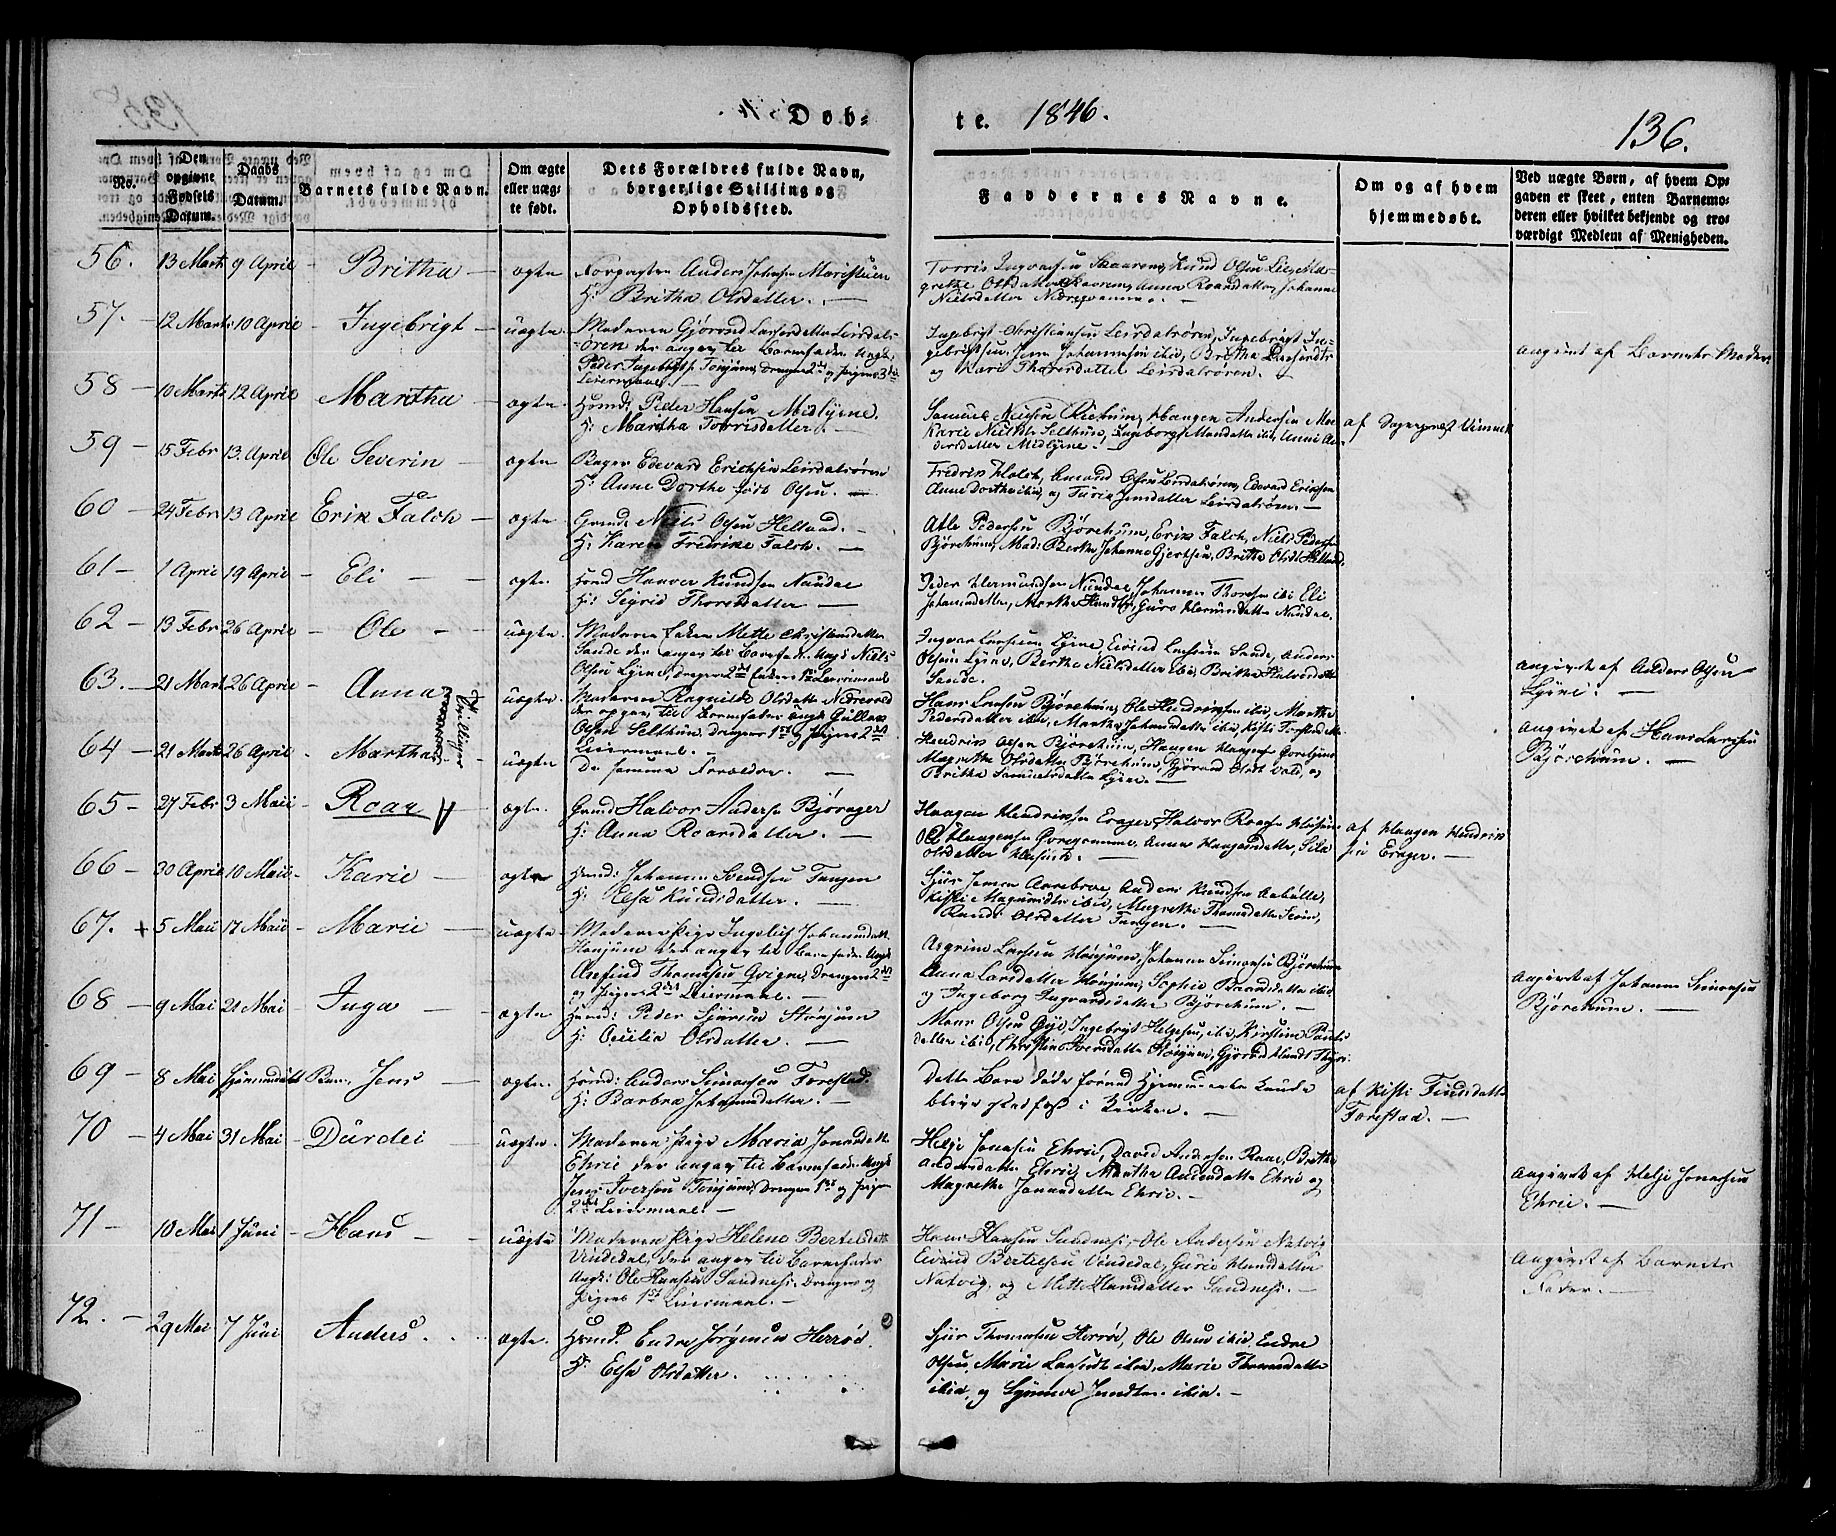 Døb-
te. 1846.
136.
No.
Den opgivne Fødsels Datum.
Daabs Datum.
Barnets fulde Navn.
Om ægte eller uægte født.
Dets Forældres fulde Navn, borgerlige Stilling og Opholdssted.
Faddernes Navne.
Om og af hvem hjemmedøbt.
Ved uægte Børn, af hvem Opgaven er skeet, enten Barnemoderen eller hvilket bekjendt og troværdigt Medlem af Menigheden.
56. 13 Marts 9 April - Britha - ægte Anders Johansen Maristuen
H: Britha Olsdatter. -
Torris Ingvarsen Skaaren, Knud Olsen Lie, Ma-
grethe Olsdatter Skaaren, Anna Roarsdatter, Johanne
Nielsdatter
57. - 12 Marts 10 April - Ingebrigt - uægte. Moderen Gjørond Larsdatter Leirdals-
øren der angav til Barnefader Ungk.
Peder Ingebrigts. Tønjum, Drengens 2det og Pigens 3die
Leiermaal. -
Ingebrigt Christiansen Leirdalsøren, Ingebrigt In-
gebrigtsen, Jens Johannesen ibid, Britha
og Kari Thoresdatter Leirdalsøren. -
angivet af Barnets Moder
58 - 10 Marts 12 April Martha - ægte Huusmd: Peder Hansen Midlyne.
H: Martha Torrisdatter. -
Samuel Nielsen Haagen Andersen
Karie Nielsdtr Selthun, Ingeborg ibid, Anne An-
dersdatter Midlyne. -
af
59 - 15 Febr 13. April Ole Severin - ægte Bager Edevard Erichsen Leirdalsøren
H: Anne Dorthe født Olsen. -
Fredrik Holch, Amund Olsen Leirdalsøren, Edvard Eriksen
Anne Dorthe ibid, og Turie Jensdatter Leirdalsøren. -
60 - 24 Febr 13 April Erik Falch - ægte. Gmd: Niels Olsen Helland. -
H: Karen Fredrike Falch. -
Atle Pedersen Bjørchum, Erik Falch, Niels Pedersen
Bjørchum, Mad: Berthe Johanne Gjertsen, Britha Olsdt Helland.
61 - 1 April 19 April - Eli - - ægte. Huusmd Hanver Knudsen Nundal
H: Sigrid Thoresdatter -
Peder Hermundsen Nundal, Johannes Thoresen ibid Eli
Johannesdatter, Martha Guro Nundal.
62 - 13 Febr 26 April - Ole - - uægte. Moderen Enken Mette Christensdatter
Sande der angav til Barnefader Ungk Niels
Olsen Lyne, Drengens 2det Enkens 1ste Leiermaal
Ingvar Larsen Lyne, Eivind Larsen Sande, Anders
Olsen Lyne, Berthe Nielsdatter ibid, Britha Halvorsdatter
Sande.
angivet af Anders Olsen
Lyne. -
63. - 21 Mart 26 April - Anna Tvillinger uægte. Moderen Ragnilde Olsdatter
der angav til Barnefader Ungk Gullac
Olsen Selthun, Drengens 1ste og Pigens 2det
Leiermaal. -
Hans Larsen Bjørchum, Ole Hendriksen ibid, Marthe
Pedersdatter ibid, Marthe Johannesdatter ibid, Kisti
angivet af Hans Larsen
Bjørchum. -
64 - 21 Marts 26 April - Martha uægte. De samme Forældre. -
Hendrik Olsen Bjørchum, Haagen Haagensen
Magrethe Olsdatter Bjørchum, Bjørond Olsdt Vold, og
Britha Samuelsdatter Lyne. -
65 - 27 Febr 3 Maii - Roar A - ægte. Gmd Halvor Andersen Bjørager
H: Anna Roarsdatter. -
Haagen Hendriksen Erager, Halvor Roarsen
Ole Haagensen Anna Haagensdatter, Sila
Olsdatter -
af Haagen Hendrik-
sen Erager. -
66 - 30 April 10 Maii - Karie - ægte Huusmd: Johannes Svendsen Tangen
H: Elsa Knudsdatter. -
Sjur Jensen Anders Knudsen
Kisti Mogensdtr ibid, Magrethe Thomasdatter
Randi Olsdatter Tangen. -
67. + 5 Maii 17 Maii - Marie - uægte Moderen Pige Ingelief Johannesdatter
Hønjum der angav til Barnefader Ungk
Arefind Thomassen Qvigne, Drengens 2det
og Pigens 2det Leiermaal. -
Asgrim Larsen Hønjum, Johannes Simonsen Bjørchum
Anna Larsdatter Hønjum, Sophie ibid
og Ingeborg Ingvardsdatter Bjørchum. -
Angivet af Johannes Simonsen
Bjørchum. -
68 - 9 Mai 21 Mai - Inga - - ægte Huusmd: Peder Sjursen Stønjum
H: Cecilia Olsdatter. -
Mons Olsen Øye, Ingebrigt Helgesen, ibid, Kirstine Pouls-
datter ibid, Christine Iversdatter Stønjum, Gjørond
69 - 8 Mai Hjemmedøbt Barn Jens - ægte. Huusmd: Anders Simonsen Forestad.
H: Barbra Johannesdatter. -
Dette Barn døde førend Hjemmedaaben kunde
blive stadfæst i Kirken. -
af Kisti Findsdatter
Forestad. -
70 - 4 Mai 31 Mai - Durdei - uægte. Moderen Pige Maria Jonasdatter
Ehrie der angav til Barnefader Ungk
Jens Iversen Tønjum, Drengens 1ste og Pigens
2det Leiermaal. -
Helje Jonasen Ehrie, David Andersen Raae, Britha
Andersdatter Ehrie, Marthe Andersdatter Ehrie og
Magrethe Jonasdatter Ehrie. -
Angivet af Helje Jonasen
Ehrie. -
71 - 10 Mai 1 Juni - Hans - - uægte Moderen Pige Helene Bertelsdatter
Vindedal, der angav til Barnefader
Ungk: Ole Hansen Sandnes. Drengens og
Pigens 1ste Leiermaal. -
Hans Hansen Sandnes, Ole Andersen Natvig
Eivind Bertelsen Vindedal, Gurie Hansdatter
Natvig, og Mette Hansdatter Sandnes. -
Angivet af Barnets
Fader. -
72. - 29 Mai 7 Juni Anders. ægte. Huusmd Endre Jørgensen Herrøe.
H: Elsa Olsdatter.
Sjur Thomassen Herrøe, Ole Olsen ibid Endre
Olsen, Marie Larsdt ibid, Marie Thomasdatter
ibid, og Synneve ibid. -